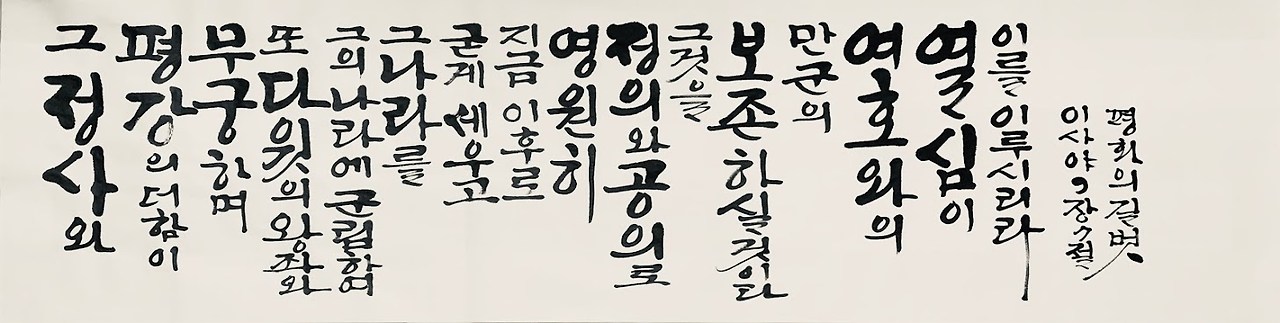 그 정사와
평강의 더함이
무궁하며
또 다윗의 왕좌와
그의 나라에 군림하여
그 나라를
굳게 세우고
지금 이후로
영원히
정의와 공의로
그것을
보존하실 것이라
만군의
여호와의
열심이
이를 이루시리라
이사야 9장 7절
평화의 길벗